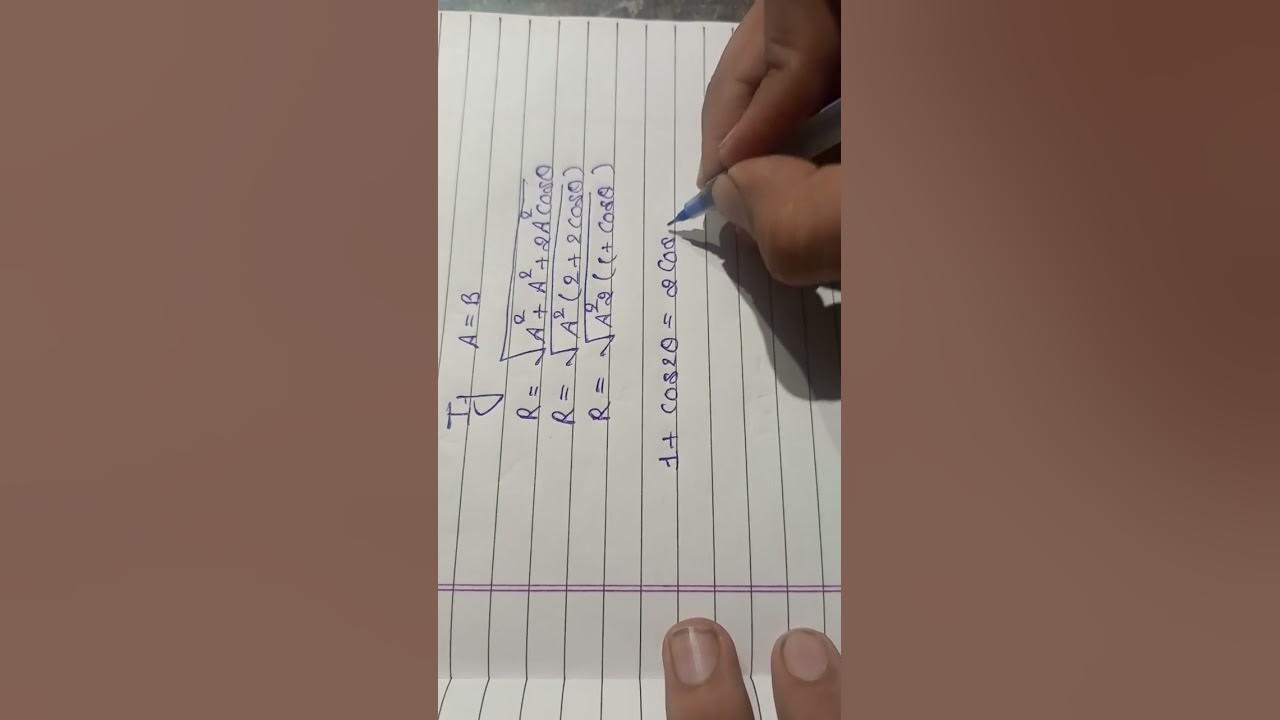 If A = B
R = √A² + A² + 2A² Cosθ
R = √A² (2 + 2 Cosθ)
R = √A² 2 (1 + Cosθ)
1 + Cos2θ = 2 Cos